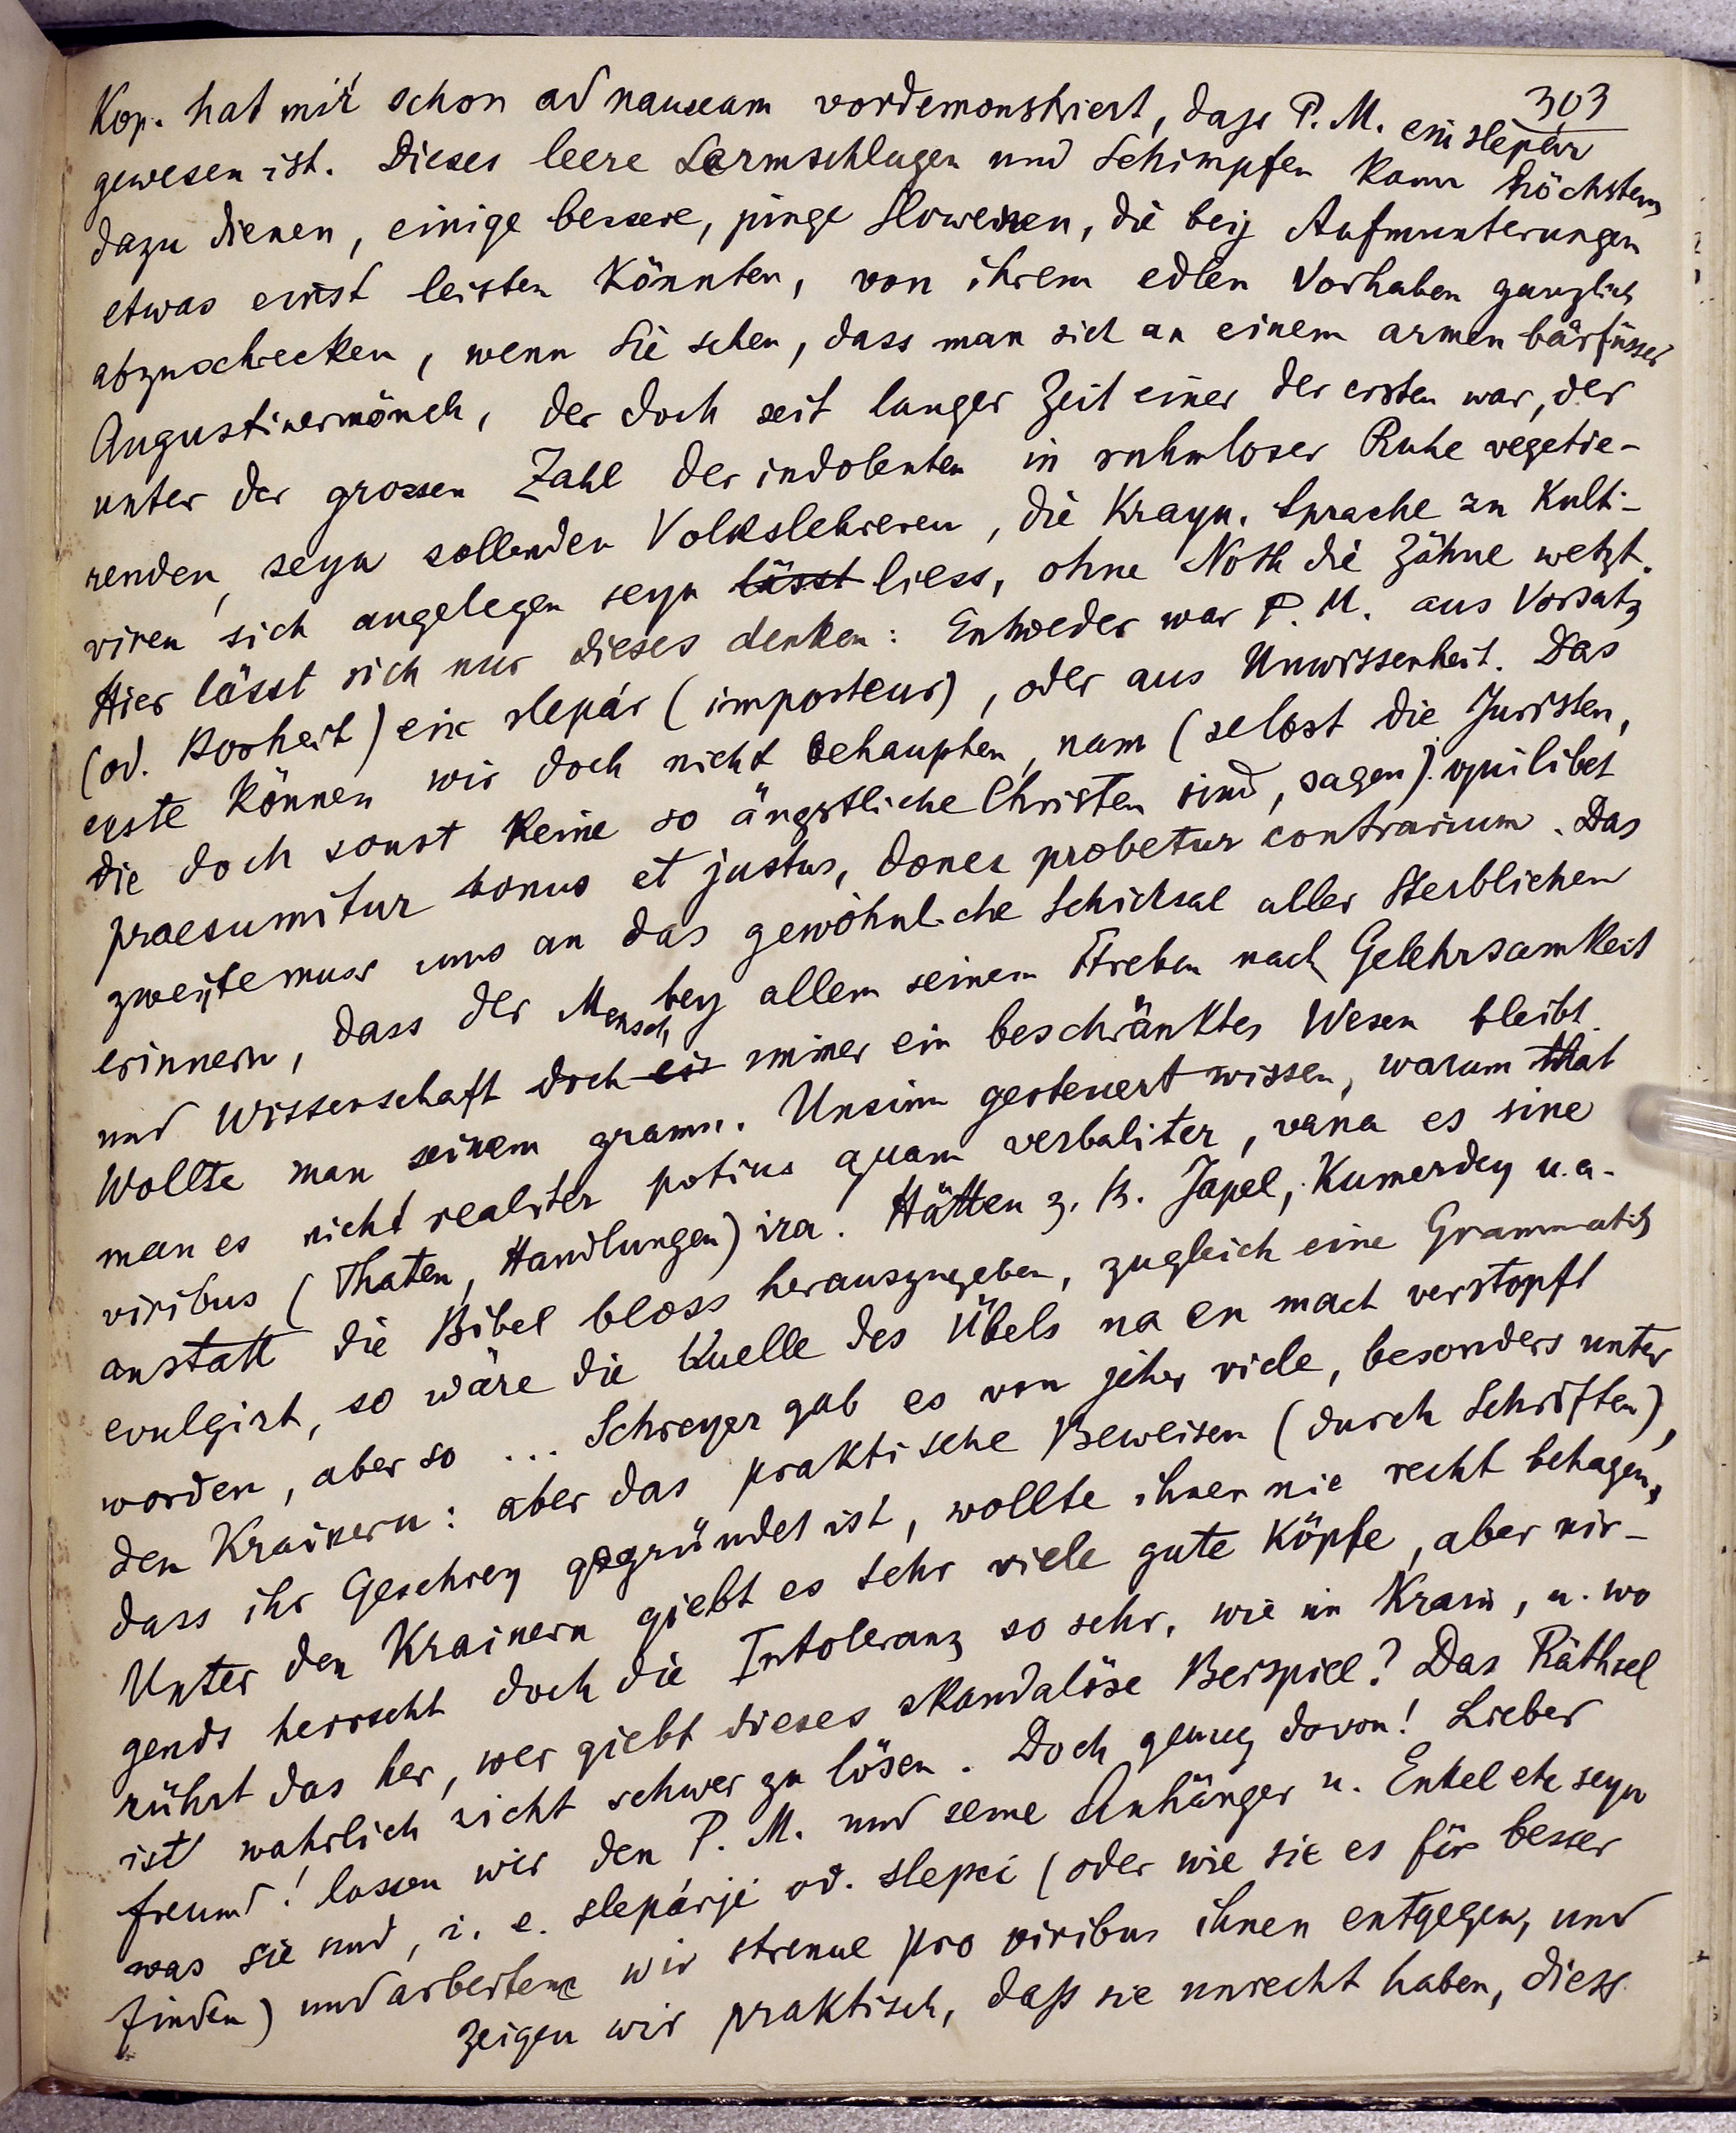 303
Kop. hat mir schon ad nauseam vordemonstriert, dass P. M. ein slepár
gewesen ist. Dieses leere Lermschlagen und Schimpfen kann höchstens
dazu dienen, einige bessere, junge Slowenen, die beij Aufmunterungen
etwas einst leisten könnten, von ihrem edlen Vorhaben ganzlich
abzuschrecken, wenn Sie sehen, dass man sich an einem armen bärfüsser
Augustinermönch, der doch seit langer Zeit einer der ersten war, der
unter der grossen Zahl der indolenten in ruhmloser Ruhe vegetie-
renden, seyn sollenden Volkslehreren, die Krayn. Sprache zu Kulti-
viren sich angelegen seyn lässt liess, ohne Noth die Zähne wetzt.
Hier lässt sich nur dieses denken: Entweder war P. M. aus Vorsatz
(od. Bosheit) ein slepár (imposteur), oder aus Unwissenheit. Das
erste können wir doch nicht behaupten, nam (selbst die Juristen,
die doch sonst keine so ängstliche Christen sind, sagen): quilibet
praesumitur bonus et justus, donec probetur contrarium. Das
zweijte muss uns an das gewöhnliche Schicksal aller Sterblichen
erinnern, dass der Mensch bey allem seinem Streben nach Gelehrsamkeit
und Wissenschaft doch ein immer ein beschränktes Wesen bleibt.
Wollte man seinem gramm. Unsinn gesteuert wissen, warum that
man es nicht realiter potius quam verbaliter, vana es sine
viribus (Thaten, Handlungen) ira. Hätten z. B. Japel, Kumerdey u. a.
anstatt die Bibel bloss herauszugeben, zugleich eine Grammatik
evulgirt, so wäre die Quelle des Übels na en mach verstopft
worden, aber so ... Schreyer gab es von jeher viele, besonders unter
den Krainern: aber das praktische Beweisen (durch Schriften),
dass ihr Geschrey gegründet ist, wollte ihnen nie recht behagen.
Unter den Krainern giebt es sehr viele gute Köpfe, aber nir-
gends herrscht doch die Intoleranz so sehr, wie in Krain, u. wo
rührt das her, wer giebt dieses skandalöse Beispiel? Das Räthsel
ist wahrlich nicht schwer zu lösen. Doch genug davon! Lieber
freund! lassen wir den P. M. und seine Anhänger u. Enkel etc seyn
was sie sind, i. e. slepárji od. slepci (oder wie sie es für besser
finden) und arbeiten wir strenue pro viribus ihnen entgegen, und
zeigen wir praktisch, daß sie unrecht haben, diess